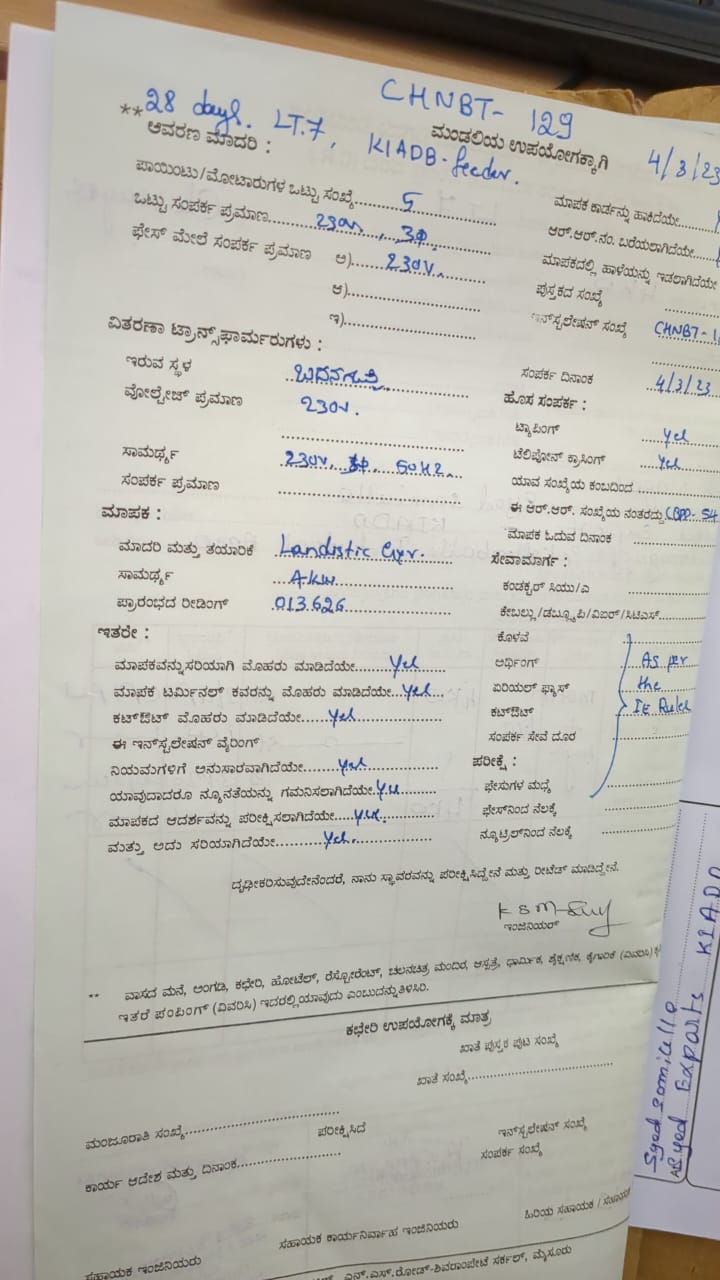 CHNBT- 129
** 28 days. LT.7, KIADB-feeder.
ಮಂಡಲಿಯ ಉಪಯೋಗಕ್ಕಾಗಿ 4/3/23
ಆವರಣ ಮಾದರಿ :
ಪಾಯಿಂಟು/ಮೋಟಾರುಗಳ ಒಟ್ಟು ಸಂಖ್ಯೆ......5......
ಒಟ್ಟು ಸಂಪರ್ಕ ಪ್ರಮಾಣ......230v, 3Φ......
ಫೇಸ್ ಮೇಲೆ ಸಂಪರ್ಕ ಪ್ರಮಾಣ ಅ)......230V.......
ಆ)......
ಇ)......
ವಿತರಣಾ ಟ್ರಾನ್ಸ್‌ಫಾರ್ಮರುಗಳು :
ಇರುವ ಸ್ಥಳ
ವೋಲ್ಟೇಜ್ ಪ್ರಮಾಣ 230v.
ಸಾಮರ್ಥ್ಯ 230V, 3Φ, 50HZ.
ಸಂಪರ್ಕ ಪ್ರಮಾಣ ......
ಮಾಪಕ :
ಮಾದರಿ ಮತ್ತು ತಯಾರಿಕೆ
ಸಾಮರ್ಥ್ಯ
ಪ್ರಾರಂಭದ ರೀಡಿಂಗ್ 013626
ಇತರೇ :
ಮಾಪಕವನ್ನು ಸರಿಯಾಗಿ ಮೊಹರು ಮಾಡಿದೆಯೇ......Yes......
ಮಾಪಕ ಟರ್ಮಿನಲ್ ಕವರನ್ನು ಮೊಹರು ಮಾಡಿದೆಯೇ...Yes...
ಕಟ್‌ಔಟ್ ಮೊಹರು ಮಾಡಿದೆಯೇ......Yes......
ಈ ಇನ್‌ಸ್ಟಲೇಷನ್ ವೈರಿಂಗ್
ನಿಯಮಗಳಿಗೆ ಅನುಸಾರವಾಗಿದೆಯೇ......Yes......
ಯಾವುದಾದರೂ ನ್ಯೂನತೆಯನ್ನು ಗಮನಿಸಲಾಗಿದೆಯೇ.Yes...
ಮಾಪಕದ ಆದರ್ಶವನ್ನು ಪರೀಕ್ಷಿಸಲಾಗಿದೆಯೇ....Yes.......
ಮತ್ತು ಅದು ಸರಿಯಾಗಿದೆಯೇ.........Yes..........
ಮಾಪಕ ಕಾರ್ಡನ್ನು ಹಾಕಿದೆಯೇ......
ಆರ್.ಆರ್.ನಂ. ಬರೆಯಲಾಗಿದೆಯೇ......
ಮಾಪಕದಲ್ಲಿ ಹಾಳೆಯನ್ನು ಇಡಲಾಗಿದೆಯೇ
ಪುಸ್ತಕದ ಸಂಖ್ಯೆ ......
ಇನ್‌ಸ್ಟಲೇಷನ್ ಸಂಖ್ಯೆ CHNBT-1
ಸಂಪರ್ಕ ದಿನಾಂಕ 4/3/23
ಹೊಸ ಸಂಪರ್ಕ :
ಟ್ಯಾಪಿಂಗ್ Yes
ಟೆಲಿಫೋನ್ ಕ್ರಾಸಿಂಗ್ Yes
ಯಾವ ಸಂಖ್ಯೆಯ ಕಂಬದಿಂದ ......
ಈ ಆರ್.ಆರ್. ಸಂಖ್ಯೆಯ ನಂತರದ್ದು
ಮಾಪಕ ಓದುವ ದಿನಾಂಕ ......
ಸೇವಾಮಾರ್ಗ :
ಕಂಡಕ್ಟರ್ ಸಿಯು/ಎ ......
ಕೇಬಲ್ಲು/ಡಬ್ಲ್ಯೂಪಿ/ವಿಐಆರ್/ಸಿಟಿಎಸ್......
ಕೊಳವೆ ......
ಅರ್ಥಿಂಗ್ As per
ಏರಿಯಲ್ ಫ್ಯೂಸ್ the
ಕಟ್‌ಔಟ್ IE Rules
ಸಂಪರ್ಕ ಸೇವೆ ದೂರ ......
ಪರೀಕ್ಷೆ :
ಫೇಸುಗಳ ಮಧ್ಯೆ ......
ಫೇಸ್‌ನಿಂದ ನೆಲಕ್ಕೆ ......
ನ್ಯೂಟ್ರಲ್‌ನಿಂದ ನೆಲಕ್ಕೆ ......
ದೃಢೀಕರಿಸುವುದೇನೆಂದರೆ, ನಾನು ಸ್ಥಾವರವನ್ನು ಪರೀಕ್ಷಿಸಿದ್ದೇನೆ ಮತ್ತು ರೀಟೆಡ್ ಮಾಡಿದ್ದೇನೆ.
ಇಂಜಿನಿಯರ್
** ವಾಸದ ಮನೆ, ಅಂಗಡಿ, ಕಛೇರಿ, ಹೋಟೆಲ್, ರೆಸ್ಟೋರೆಂಟ್, ಚಲನಚಿತ್ರ ಮಂದಿರ, ಆಸ್ಪತ್ರೆ, ಧಾರ್ಮಿಕ, ಶೈಕ್ಷಣಿಕ, ಕೈಗಾರಿಕೆ (ವಿವರಿಸಿ)
ಇತರೆ ಪಂಪಿಂಗ್ (ವಿವರಿಸಿ) ಇದರಲ್ಲಿ ಯಾವುದು ಎಂಬುದನ್ನು ತಿಳಿಸಿರಿ.
ಕಛೇರಿ ಉಪಯೋಗಕ್ಕೆ ಮಾತ್ರ
ಖಾತೆ ಪುಸ್ತಕ ಪುಟ ಸಂಖ್ಯೆ
ಖಾತೆ ಸಂಖ್ಯೆ......
ಮಂಜೂರಾತಿ ಸಂಖ್ಯೆ...... ಪರೀಕ್ಷಿಸಿದೆ ಇನ್‌ಸ್ಟಲೇಷನ್ ಸಂಖ್ಯೆ
ಕಾರ್ಯ ಆದೇಶ ಮತ್ತು ದಿನಾಂಕ...... ಸಂಪರ್ಕ ಸಂಖ್ಯೆ
ಸಹಾಯಕ ಇಂಜಿನಿಯರು ಸಹಾಯಕ ಕಾರ್ಯನಿರ್ವಾಹ ಇಂಜಿನಿಯರು ಹಿರಿಯ ಸಹಾಯಕ /
ಎನ್.ಎಸ್.ರೋಡ್-ಶಿವರಾಂಪೇಟೆ ಸರ್ಕಲ್, ಮೈಸೂರು
Exparts KIADB